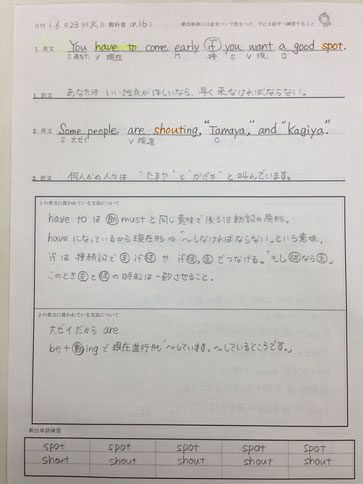 日付(6月23日(火)) 教科書(P.16)
1. 英文 You have to come early if you want a good spot.
Sあなた V現在 M 接 S V O
1. 訳文 あなたは いい地点がほしいなら、早く来なければならない。
2. 英文 Some people are shouting, "Tamaya," and "Kagiya".
S 大ゼイ V現進 O
2. 訳文 何人かの人々は "たまや" と "かぎや" と 叫んでいます。
1の英文に使われている文法について
have to は 助 must と同じ意味で後ろは動詞の原形。
have になっているから現在形⇒「〜しなければならない」という意味。
if は 接続詞で
このとき 主 と 従 の時制は一致させること。
2の英文に使われている文法について
大ゼイだから are
be + 動ing で現在進行形 "〜しています。〜しているところです。"
新出単語練習
spot spot spot spot spot
shout shout shout shout shout